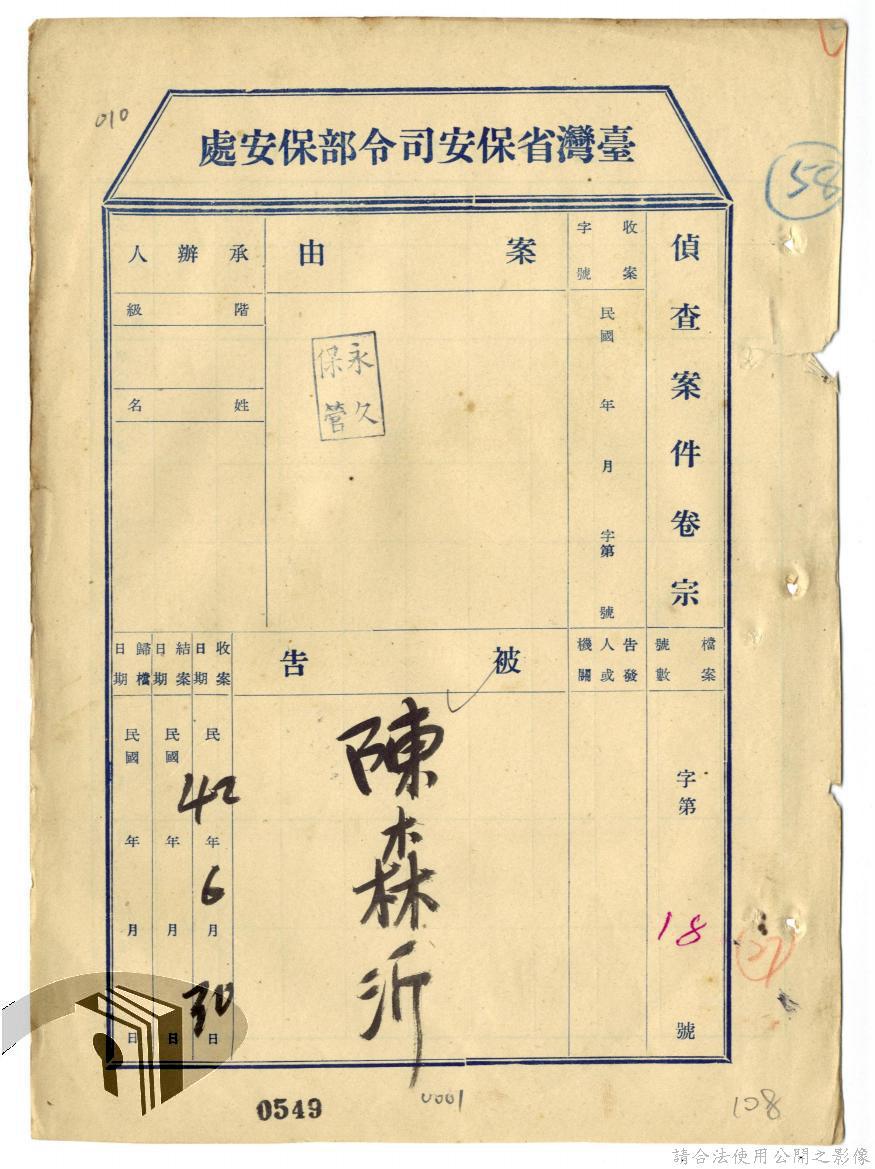 010
臺灣省保安司令部保安處
58
偵查案件卷宗
檔案號數
字第18號
收案字號
民國 年 月 字第 號
告發人或機關
案由
永久保管
被告
陳森沂
承辦人
階級
姓名
收案日期
民 42年6月30日
結案日期
民國 年 月 日
歸檔日期
民國 年 月 日
0549
0001
108
請合法使用公開之影像